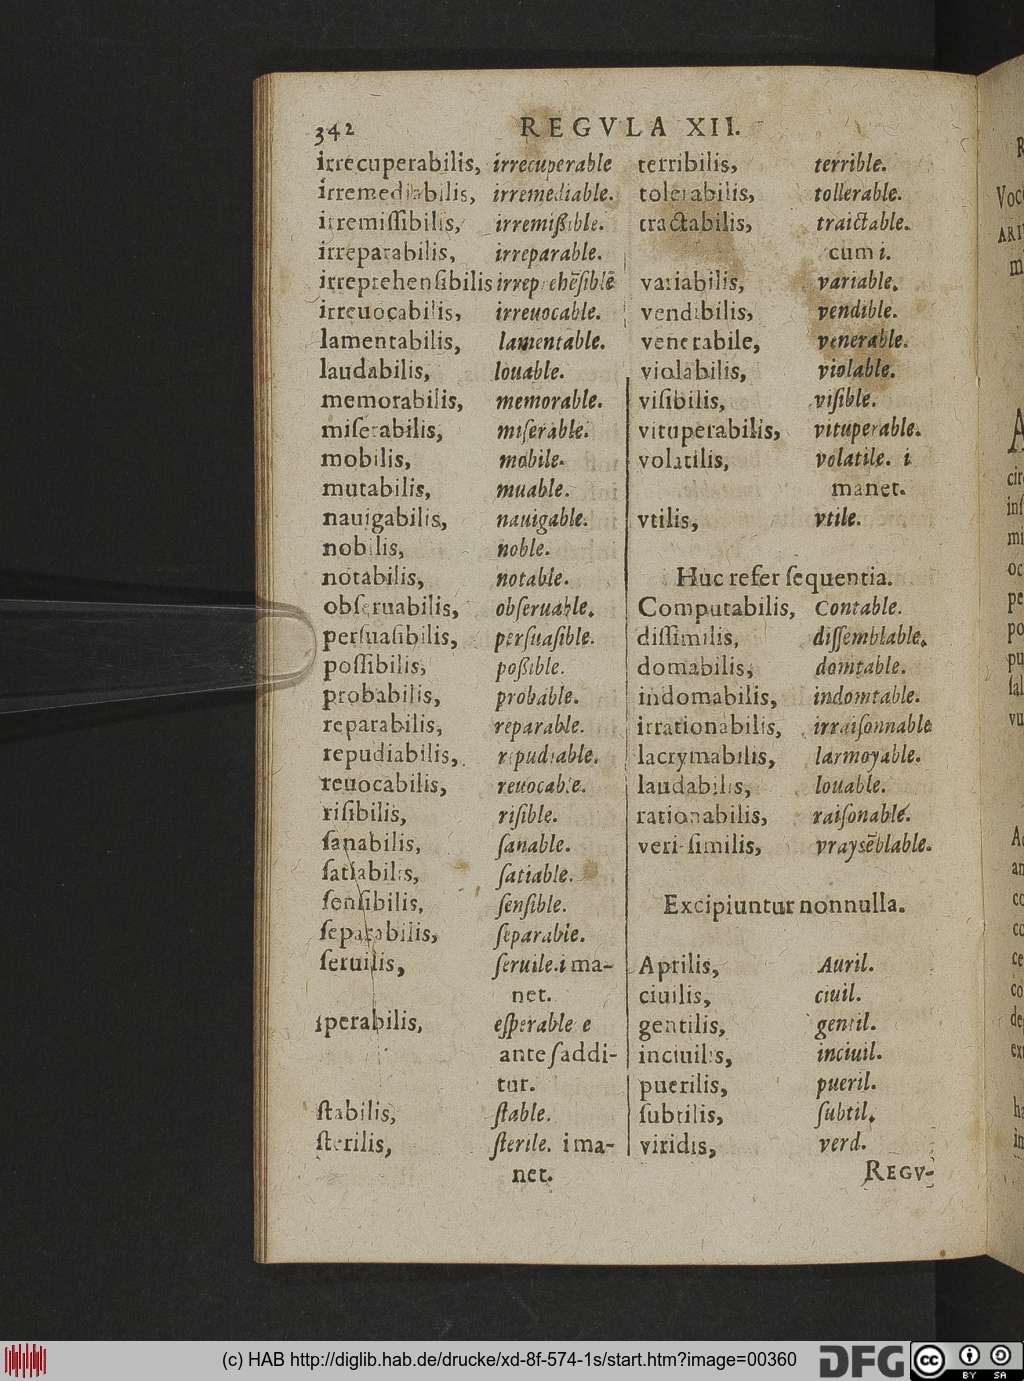 342
REGVLA XII.
irrecuperabilis, irrecuperable
irremediabilis, irremediable.
irremiſſibilis, irremißible.
irreparabilis, irreparable.
irreprehenſibilis irreprehẽſiblẽ
irreuocabilis, irreuocable.
lamentabilis, lamentable.
laudabilis, louable.
memorabilis, memorable.
miſerabilis, miſerable.
mobilis, mobile.
mutabilis, muable.
nauigabilis, nauigable.
nobilis, noble.
notabilis, notable.
obſeruabilis, obſeruable.
perſuaſibilis, perſuaſible.
poſſibilis, poßible.
probabilis, probable.
reparabilis, reparable.
repudiabilis, repudiable.
reuocabilis, reuocable.
riſibilis, riſible.
ſanabilis, ſanable.
ſatiabilis, ſatiable.
ſenſibilis, ſenſible.
ſeparabilis, ſeparable.
ſeruilis, ſeruile. i ma-
net.
ſperabilis, eſperable e
ante ſ addi-
tur.
ſtabilis, ſtable.
ſterilis, ſterile. i ma-
net.
terribilis, terrible.
tolerabilis, tollerable.
tractabilis, traictable.
cum i.
variabilis, variable.
vendibilis, vendible.
venerabile, venerable.
violabilis, violable.
viſibilis, viſible.
vituperabilis, vituperable.
volatilis, volatile. i
manet.
vtilis, vtile.
Huc refer ſequentia.
Computabilis, Contable.
diſſimilis, diſſemblable.
domabilis, domtable.
indomabilis, indomtable.
irrationabilis, irraiſonnable
lacrymabilis, larmoyable.
laudabilis, louable.
rationabilis, raiſonable.
veri-ſimilis, vraysẽblable.
Excipiuntur nonnulla.
Aprilis, Auril.
ciuilis, ciuil.
gentilis, gentil.
inciuilis, inciuil.
puerilis, pueril.
ſubtilis, ſubtil.
viridis, verd.
REGV-
(c) HAB http://diglib.hab.de/drucke/xd-8f-574-1s/start.htm?image=00360
DFG
cc
BY SA